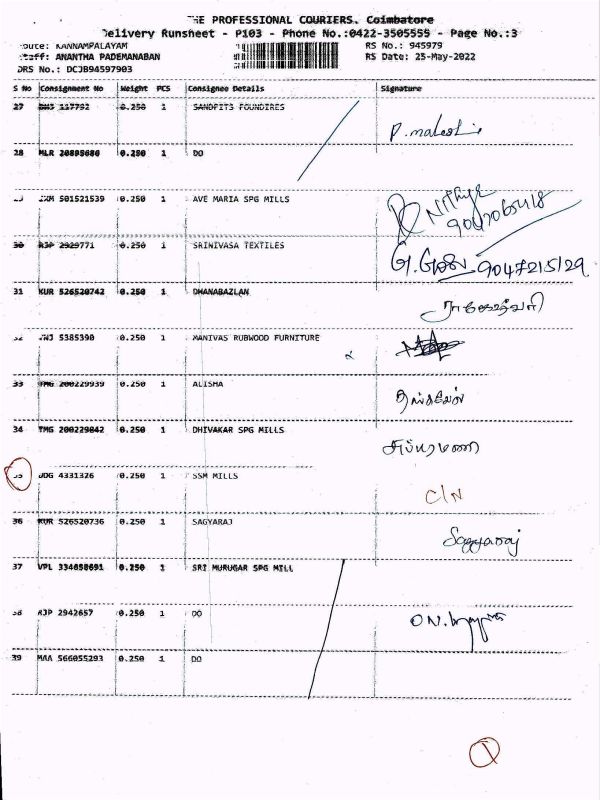 THE PROFESSIONAL COURIERS. Coimbatore
Delivery Runsheet - P103 - Phone No.:0422-3505555 - Page No.:3
Route: KANNAMPALAYAM RS No.: 945979
Staff: ANANTHA PADEMANABAN RS Date: 25-May-2022
DRS No.: DCJB94597903
S No Consignment No Weight PCS Consignee Details Signature
27 137792 0.250 1 SANDFITS FOUNDIRES
28 MLR 20895680 0.250 1 DO
29 501521539 0.250 1 AVE MARIA SPG MILLS
30 RJP 2929771 0.250 1 SRINIVASA TEXTILES 9047215129
31 KUR 526520742 0.250 1 DHANABAZLAN
32 5385390 0.250 1 MANIVAS RUBWOOD FURNITURE
33 TMG 200229939 0.250 1 ALISHA
34 TMG 200229842 0.250 1 DHIVAKAR SPG MILLS
35 JDG 4331326 0.250 1 SSM MILLS C/N
36 KUR 526520736 0.250 1 SAGYARAJ Sagyaraj
37 VPL 334658691 0.250 1 SRI MURUGAR SPG MILL
38 RJP 2942657 0.250 1 DO
39 MAA 566055293 0.250 1 DO
1